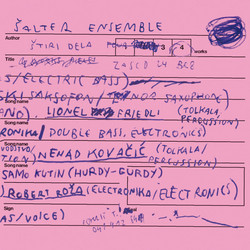 ŠALTER ENSEMBLE
Author
ŠTIRI DELA 3 4 works
S/ELECTRIC BASS)
SKI SAKSOFON / TENOR SAXOPHONE)
AND), LIONEL FRIEDLI (TOLKALA,
PERCUSSION)
Song name
RONIKA/DOUBLE BASS, ELECTRONICS)
VODSTVO/
TION) NENAD KOVAČIĆ (TOLKALA/
PERCUSSION)
Song name
SAMO KUTIN (HURDY-GURDY)
Song name
ROBERT ROŽA (ELECTRONIKA/ELECTRONICS)
Sign
AS/VOICE)